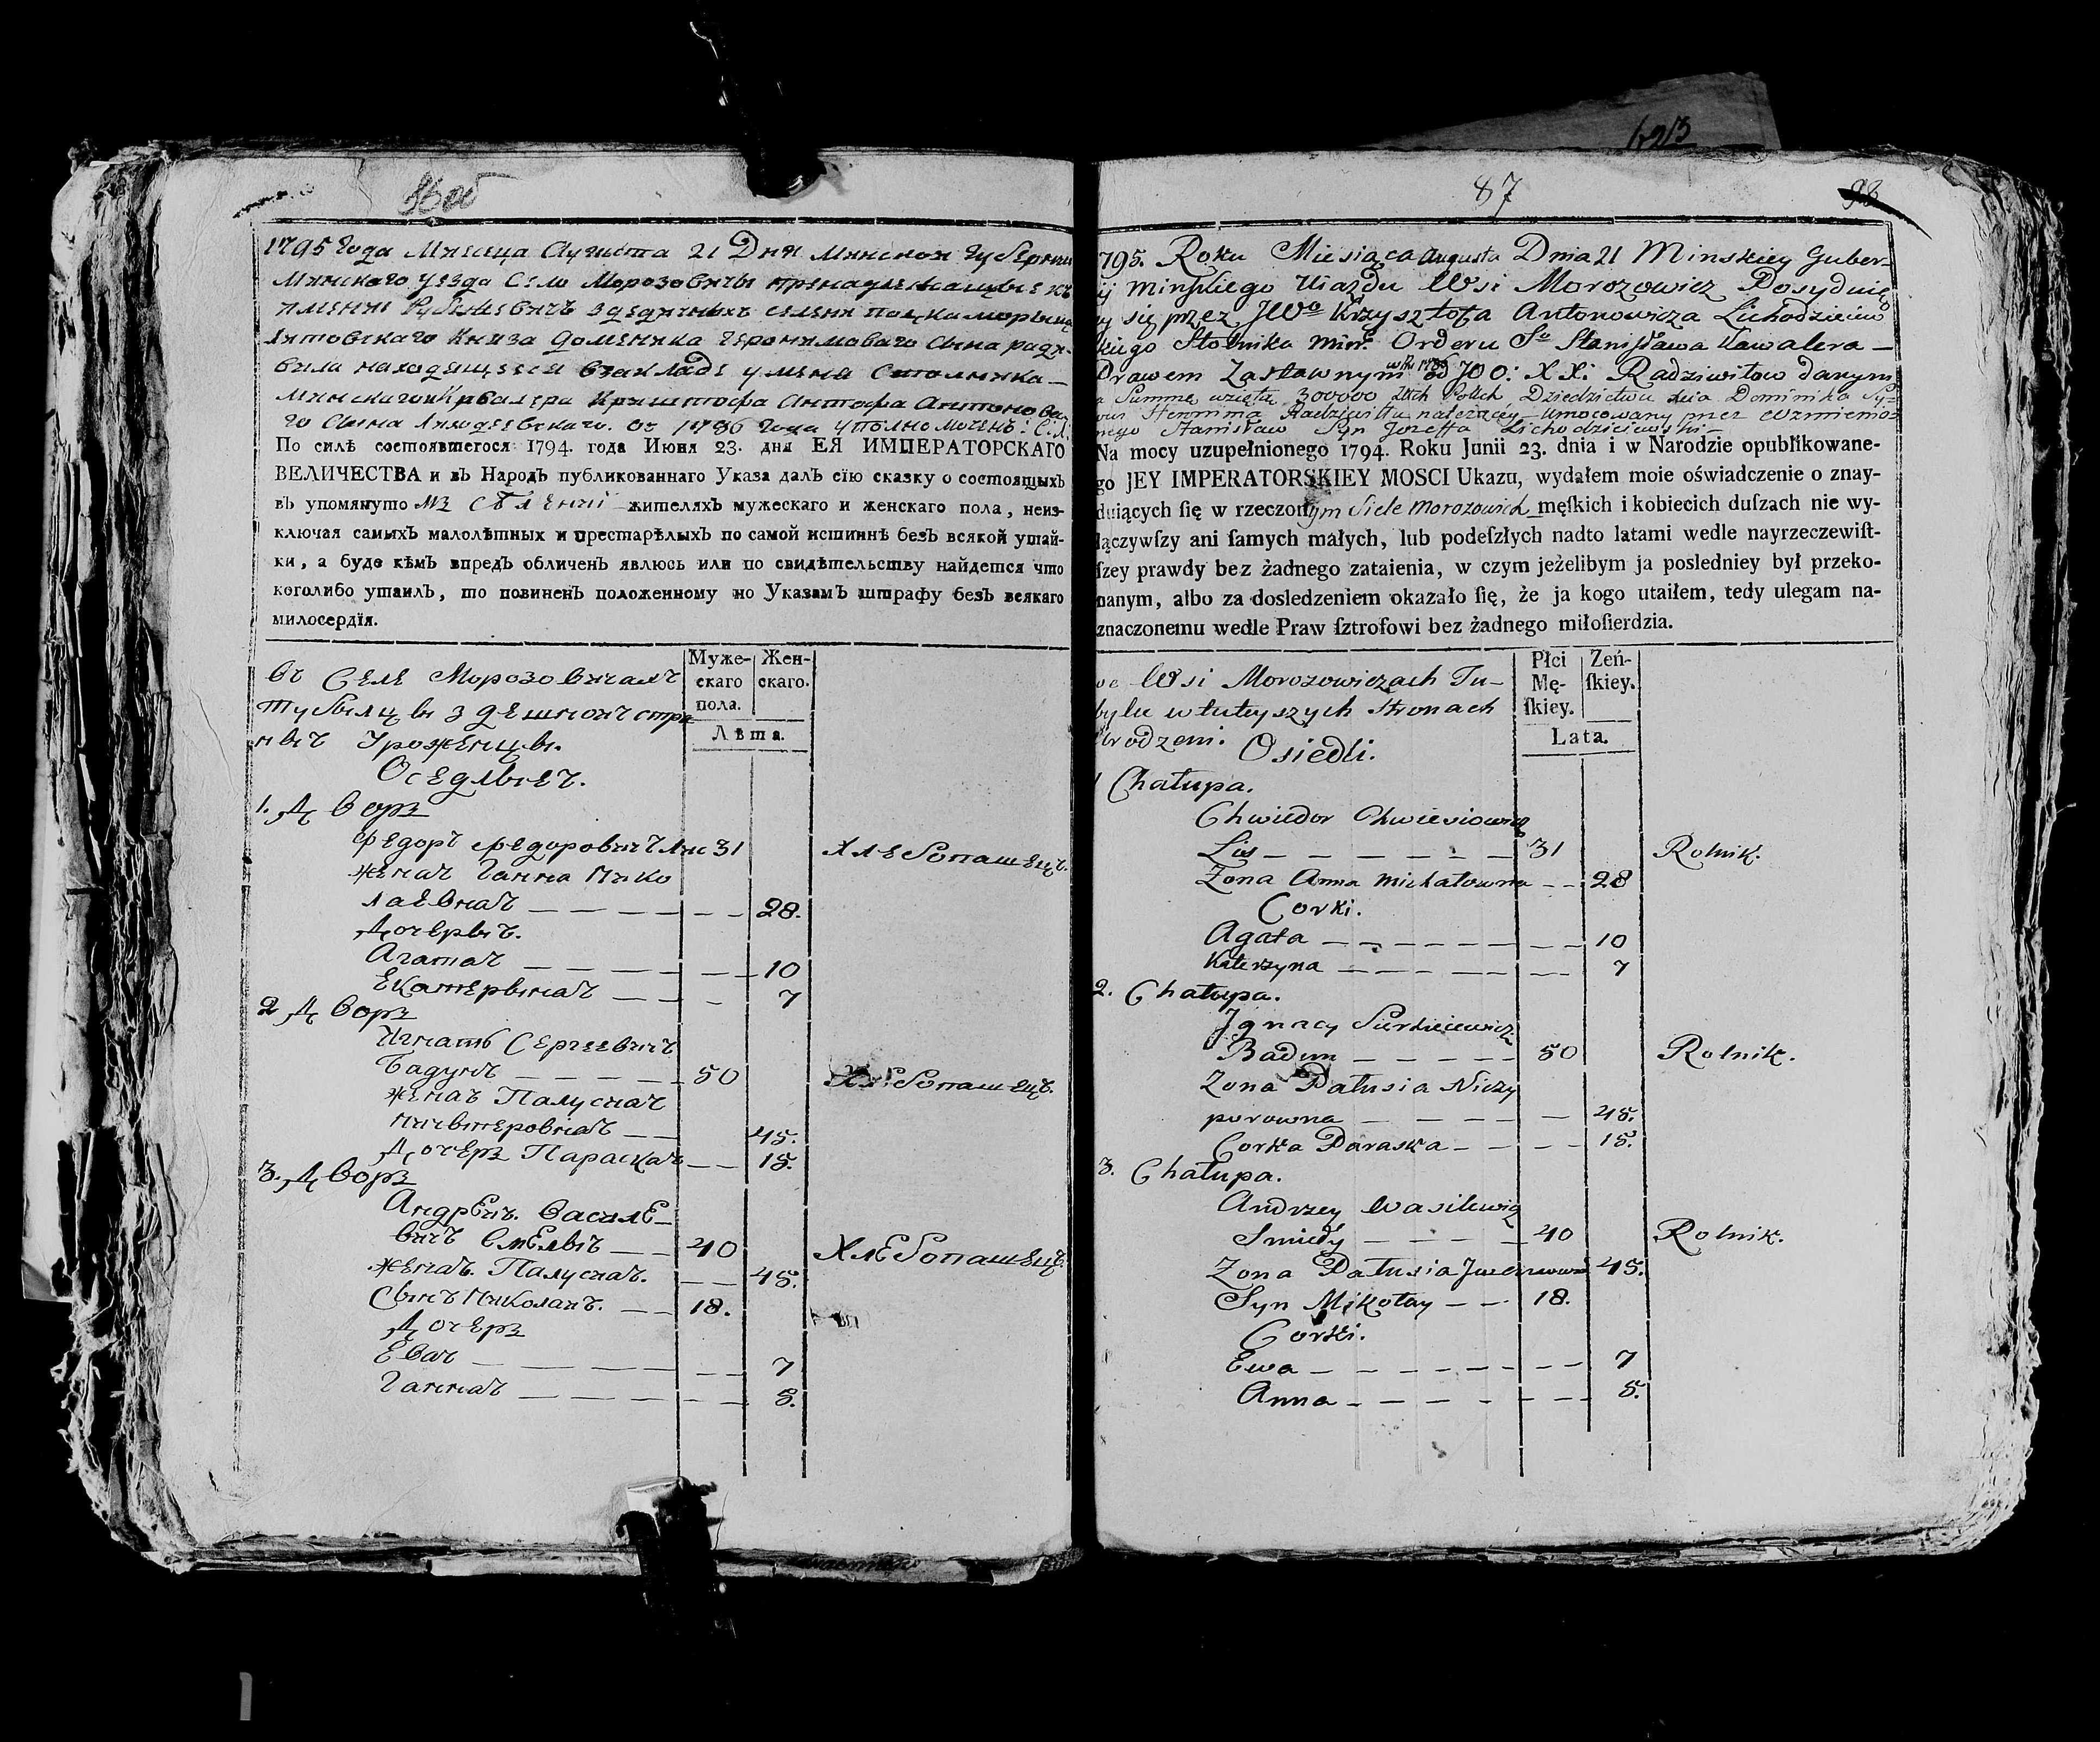 86 об
1795 года Месяца Аугуста 21 Дня Минской Губернии
Минскаго уезда Село Морозовичы принадлежащые къ
имению
Литовскаго Княза Доменика Геронимоваго Сына Радзи-
вила находящееся взакладе у мена Столника
Минскаго и Кавалера Криштофа Антонова-
го Сына 1786 года уполномоченъ
По силѣ состоявшегося 1794. года Июня 23. дня ЕЯ ИМПЕРАТОРСКАГО
ВЕЛИЧЕСТВА и въ Народъ публикованнаго Указа далъ сїю сказку о состоящыхъ
въ упомянуто мъ селении жителяхъ мужескаго и женскаго пола, неиз-
ключая самыхъ малолѣтныхъ и престарѣлыхъ по самой истиннѣ безъ всякой утай-
ки, а буде кѣмъ впредь обличенъ явлюсь или по свидѣтельству найдется что
коголибо утаилъ, то повиненъ положенному по Указамъ штрафу безъ всякаго
милосердїя.
въ Селе Морозовичахъ
тубылцы здешнихъ стра
ныхъ Уроженцы.
Оседлые.
Муже-
скаго
пола.
Жен-
скаго.
Лѣта.
1. Дворъ
Федоръ Федоровичъ Лис 31 Хлебопашецъ.
жена Ганна Мико
лаевна — — — — 28.
Дочеры.
Агата — — — — 10
Екатерына — — — 7
2 Дворъ
Игнатъ Сергеевичъ
Бадунъ — — — — 50 Хлебопашецъ.
жена Палуся
Ничыперовна — — 45.
Дочеръ Параска — — 15.
3. Дворъ
Андрей Василе-
вичъ Смелы — — 40 Хлебопашецъ.
жена Палуся. — — 45.
Сынъ Миколай. — — 18.
Дочеръ
Ева — — — — 7
Ганна — — — — 5.
87
98
1795. Roku Miesiąca Augusta Dnia 21 Minskiey Guber-
ij Minskiego Uiazdu Wsi Morozowicz Posyduią
cy się przez JWo Krzysztofa Antonowicza Lichodziejew
kiego Stolnika Min: Orderu So Stanisława Kawalera —
Prawem Zastawnym w Ru 1786 od JOO: XX: Radziwiłow danym
a Summę wziętą 300000 Złch Polch Dziedzictwu Xcia Dominika Sy-
na Heronima Radziwiłła należącey — Umocowany przez Wzmienio-
nego Stanisław Syn Jozeffa Lichodziejewski —
Na mocy uzupełnionego 1794. Roku Junii 23. dnia i w Narodzie opublikowane-
go JEY IMPERATORSKIEY MOSCI Ukazu, wydałem moie oświadczenie o znay-
duiących ſię w rzeczonym Siele Morozowich męſkich i kobiecich duſzach nie wy-
łączywſzy ani ſamych małych, lub podeſzłych nadto latami wedle nayrzeczewiſt-
ſzey prawdy bez żadnego zataienia, w czym jeżelibym ja posledniey był przeko-
nanym, albo za dosledzeniem okazało ſię, że ja kogo utaiłem, tedy ulegam na-
znaczonemu wedle Praw ſztrofowi bez żadnego miłoſierdzia.
we Wsi Morozowiczach Tu-
bylu w tuteyszych Stronach
Urodzeni. Osiedli.
Płci
Mę-
ſkiey.
Zeń-
ſkiey.
Lata.
1 Chałupa.
Chwiedor Chwiesiowicz
Lis — — — — — — 31 Rolnik.
Zona Anna Michałowna — — 28
Corki.
Agata — — — — — — — 10
Katerzyna — — — — — — 7
2. Chałupa.
Jgnacy Serhieiewicz
Badun — — — — — 50 Rolnik.
Zona Pałusia Niczy
porowna — — — — — 45.
Corka Paraska — — — — 15.
3. Chałupa.
Andrzey Wasilewicz
Smiedy — — — — 40 Rolnik.
Zona Pałusia 45.
Syn Mikołay — — 18.
Corki.
Ewa — — — — — — — 7
Anna — — — — — — — 5.